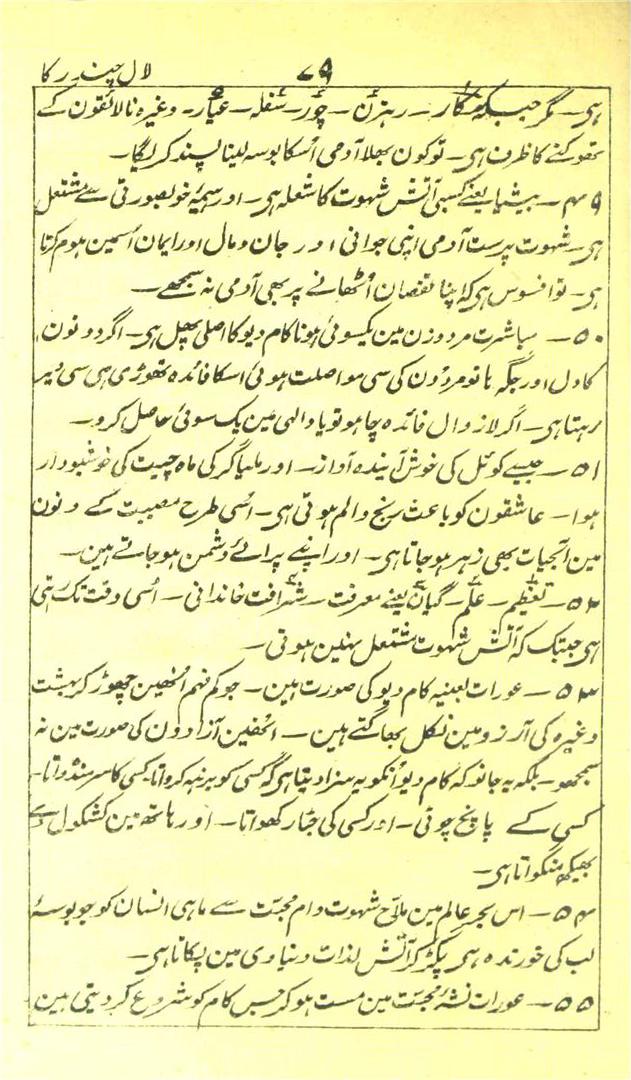 ۷۹ لال چندر کا
ہی۔ مگر جبکہ مکار۔ رہزن۔ چور۔ سفلہ۔ عیار۔ وغیرہ نالائقون کے
تھوکنے کا ظرف ہی۔ تو کون بھلا آدمی اُسکا بوسہ لینا پسند کریگا۔
۴۹۔ بیشیا یعنے کسبی آتش شہوت کا شعلہ ہی۔ اور ہیمۂ خوبصورتی سے مشتعل
ہی۔ شہوت پرست آدمی اپنی جوانی اور جان و مال اور ایمان اُسمین ہوم کرتا
ہی۔ تو افسوس ہی کہ اپنا نقصان اُٹھانے پر بھی آدمی نہ سمجھے۔
۵۰۔ مباشرت مرد و زن مین یکسوئی ہونا کام دیو کا اصلی پھل ہی۔ اگر دونون
کا دل اور جگہ ہا تو مردون کی سی مواصلت ہوئی اسکا فائدہ تھوڑی ہی سی دیر
رہتا ہی۔ اگر لازوال فائدہ چاہو تو یاد الہی مین یک سوئی حاصل کرو۔
۵۱۔ جیسے کوئل کی خوش آیندہ آواز۔ اور ملیاگر کی ماہ چیت کی خوشبودار
ہوا۔ عاشقون کو باعث رنج و الم ہوتی ہی۔ اُسی طرح مصیبت کے دنون
مین آبحیات بھی زہر ہو جاتا ہی۔ اور اپنے پرائے دشمن ہو جاتے ہین۔
۵۲۔ تعظیم۔ علم۔ گیان یعنے معرفت۔ شرافت خاندانی۔ اُسی وقت تک رہتی
ہی جبتک کہ آتش شہوت مشتعل نہین ہوتی۔
۵۳۔ عورات بعینہ کام دیو کی صورت ہین۔ جو کم فہم اُنھین چھوڑ کر بہشت
وغیرہ کی آرزو مین نکل بھاگتے ہین۔ اُنھین آزادون کی صورت مین نہ
سمجھو۔ بلکہ یہ جانو کہ کام دیو اُنکو یہ سزا دیتا ہی کہ کسی کو برہنہ کرواتا۔ کسی کا سر منڈواتا۔
کسی کے پانچ چوٹی۔ اور کسی کی جٹا رکھواتا۔ اور ہاتھ مین کشکول دے
بھیکھ منگواتا ہی۔
۵۴۔ اس بحر عالم مین ملاح شہوت دام محبت سے ماہی انسان کو جو بوسۂ
لب کی خورندہ ہی پکڑ کر آتش لذات دنیاوی مین پکاتا ہی۔
۵۵۔ عورات نشۂ محبت مین مست ہو کر جس کام کو شروع کر دیتی ہین